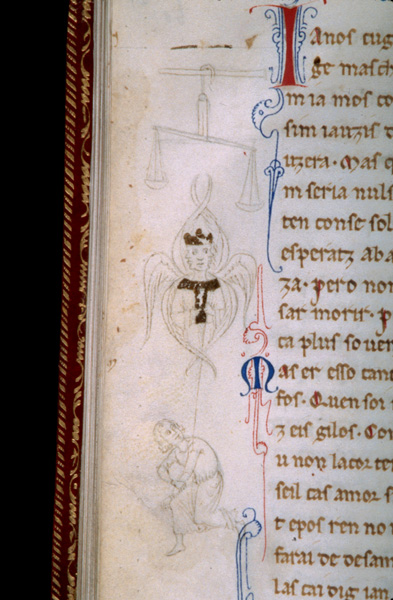 Ianos cug
ge masch
m ia mos co
sim iauzis t
uzera. Mas q
m seria nuls
ten conse sol
esperatz aba
za. pero non
sar morir. p
ca plus souer
Mas er esso canc
fos. Quen soi
z eis gilos. Con
u non lacor te
seil cas amor s
t epos ren no
farai de desam
las cai dig ian